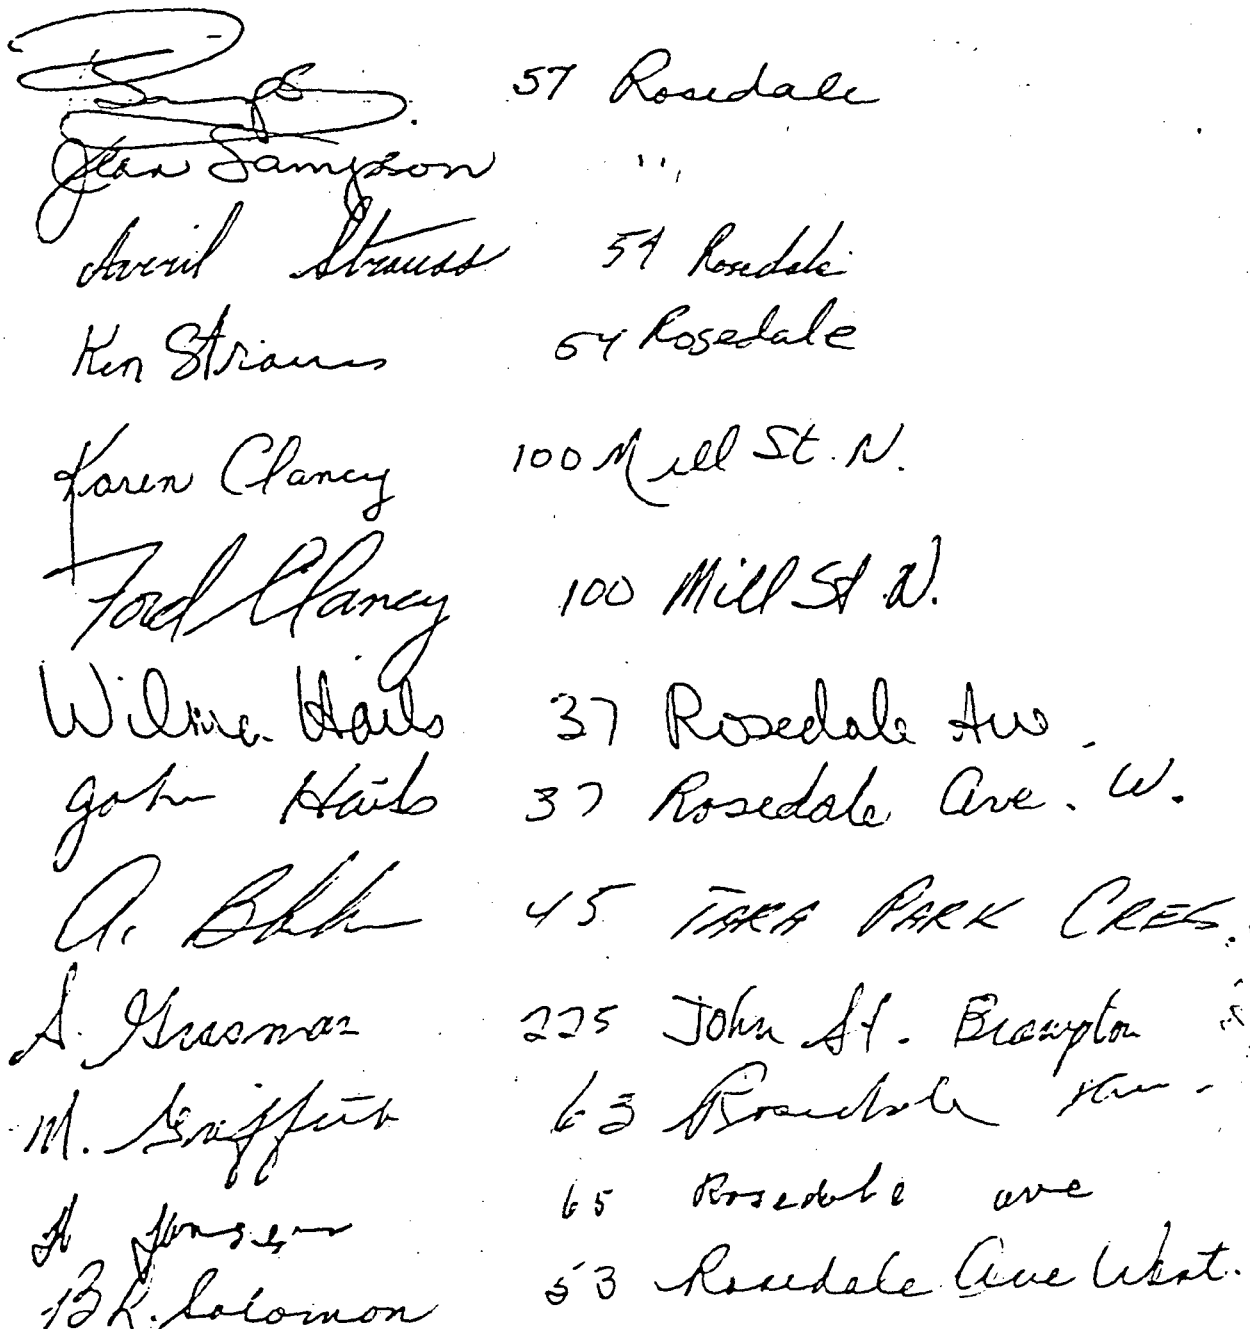 57 Rosedale
Jean Sampson " "
Averil Strauss 54 Rosedale
Ken Strauss 54 Rosedale
Karen Clancy 100 Mill St. N.
Ford Clancy 100 Mill St N.
Wilma Hails 37 Rosedale Ave.
John Hails 37 Rosedale Ave. W.
A. 45 TARA PARK CRES.
S. 225 John St. Brampton
M. Griffith 63 Rosedale Ave.
H Jansen 65 Rosedale ave
B R. Solomon 53 Rosedale Ave West.